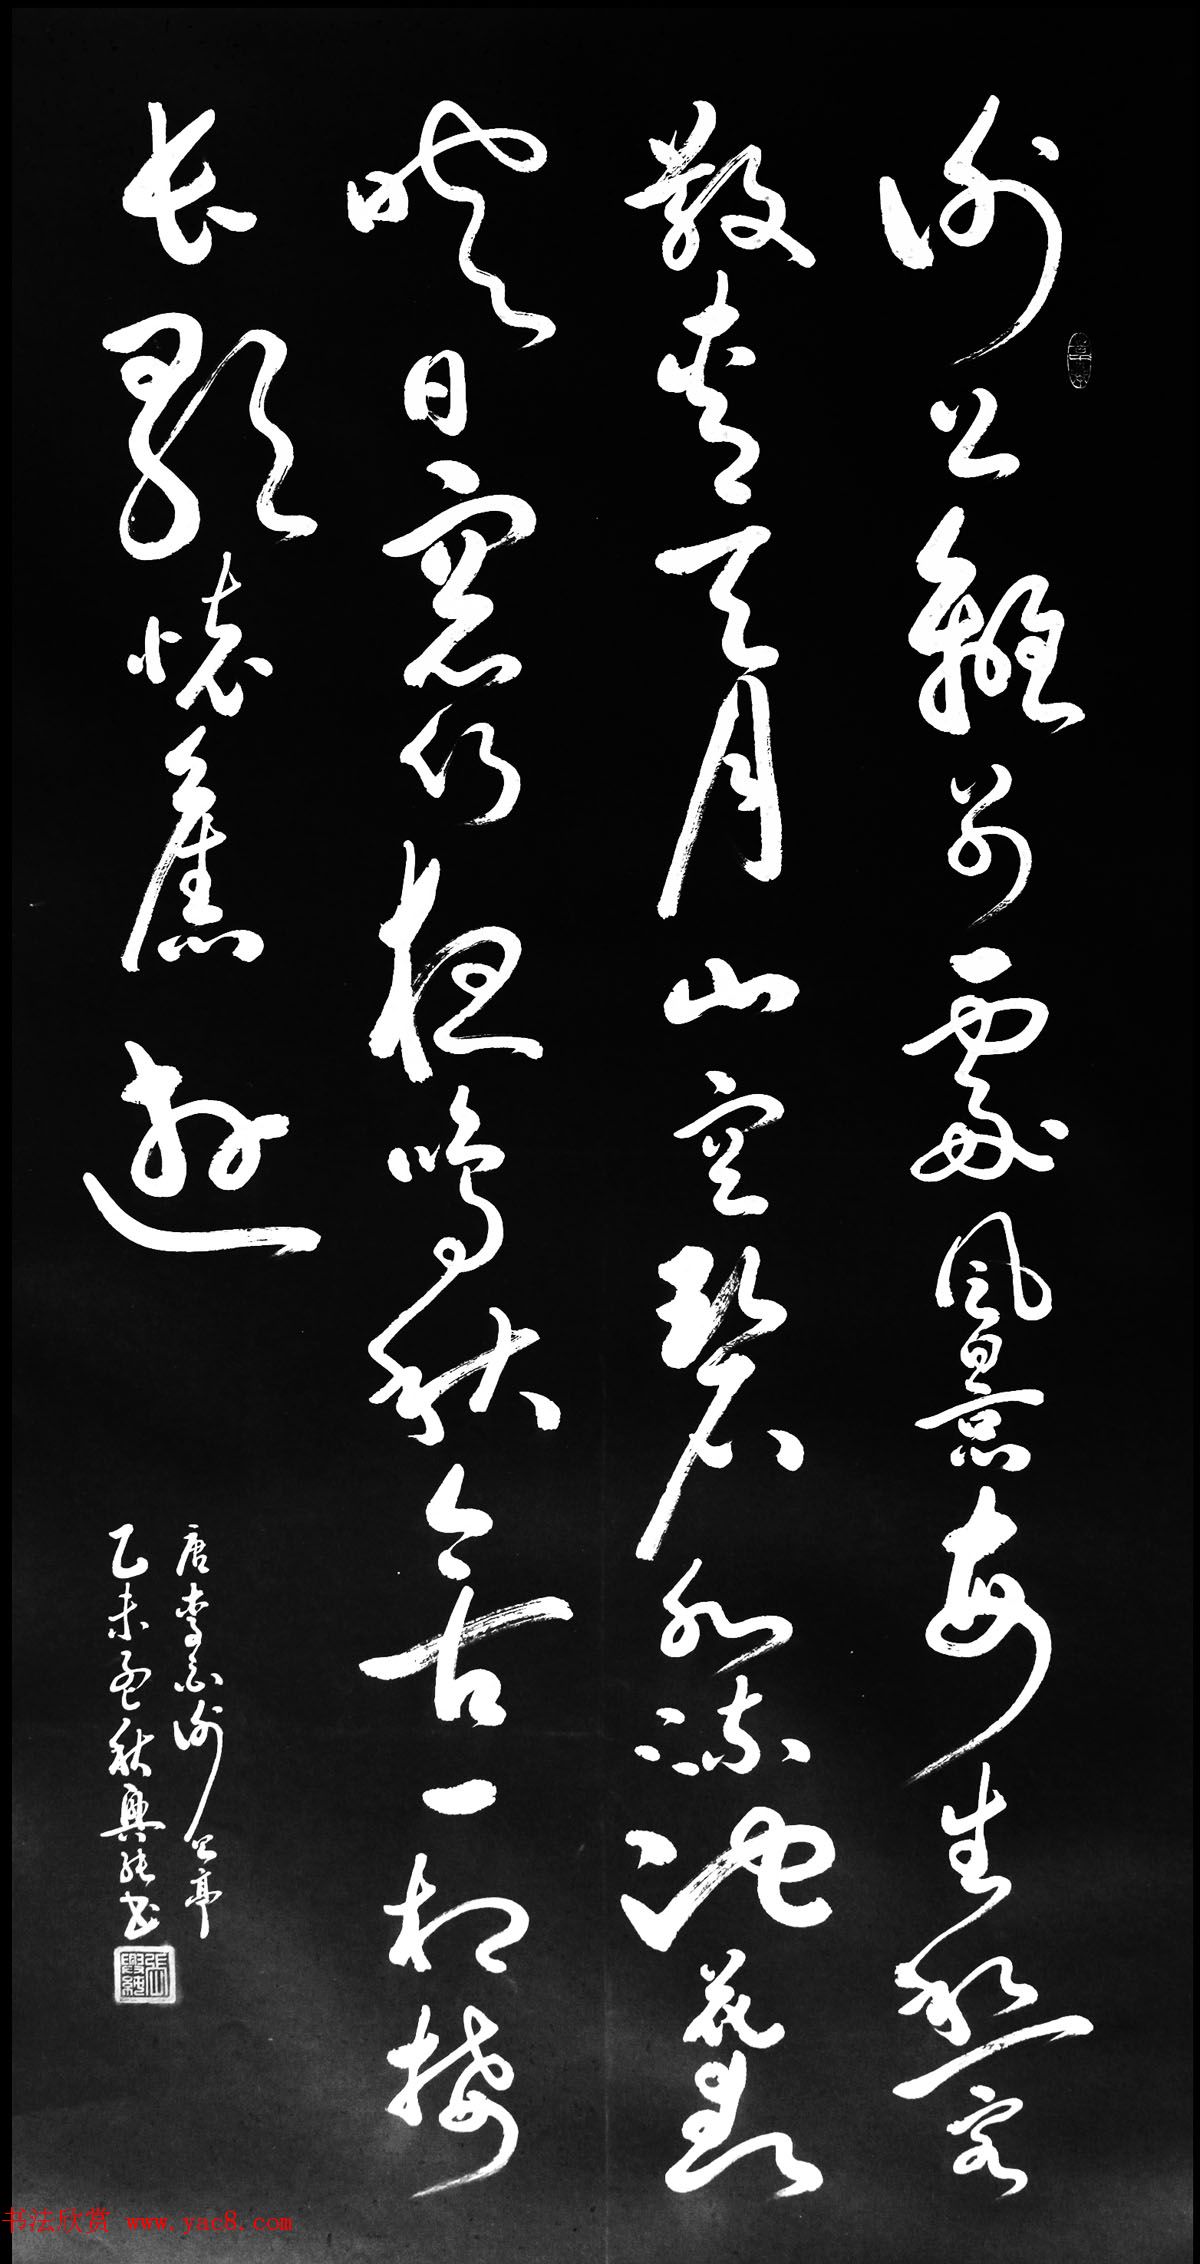 謝公離別處風景每生愁客
散青天月山空碧水流池花春
映日窗竹夜鳴秋今古一相接
长歌懷舊遊
唐李白謝公亭
乙未孟秋書
书法欣赏 www.yac8.com